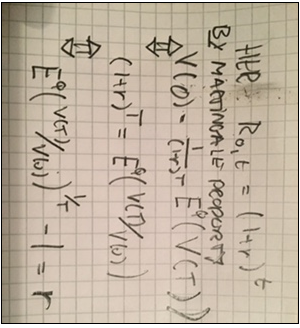 HER: R0,t = (1+r)^t
By MARTINGALE PROPERTY
V(0) = 1/(1+r)^T E^Q(V(T))
⇕
(1+r)^T = E^Q(V(T)/V(0))
⇕
E^Q(V(T)/V(0))^1/T - 1 = r